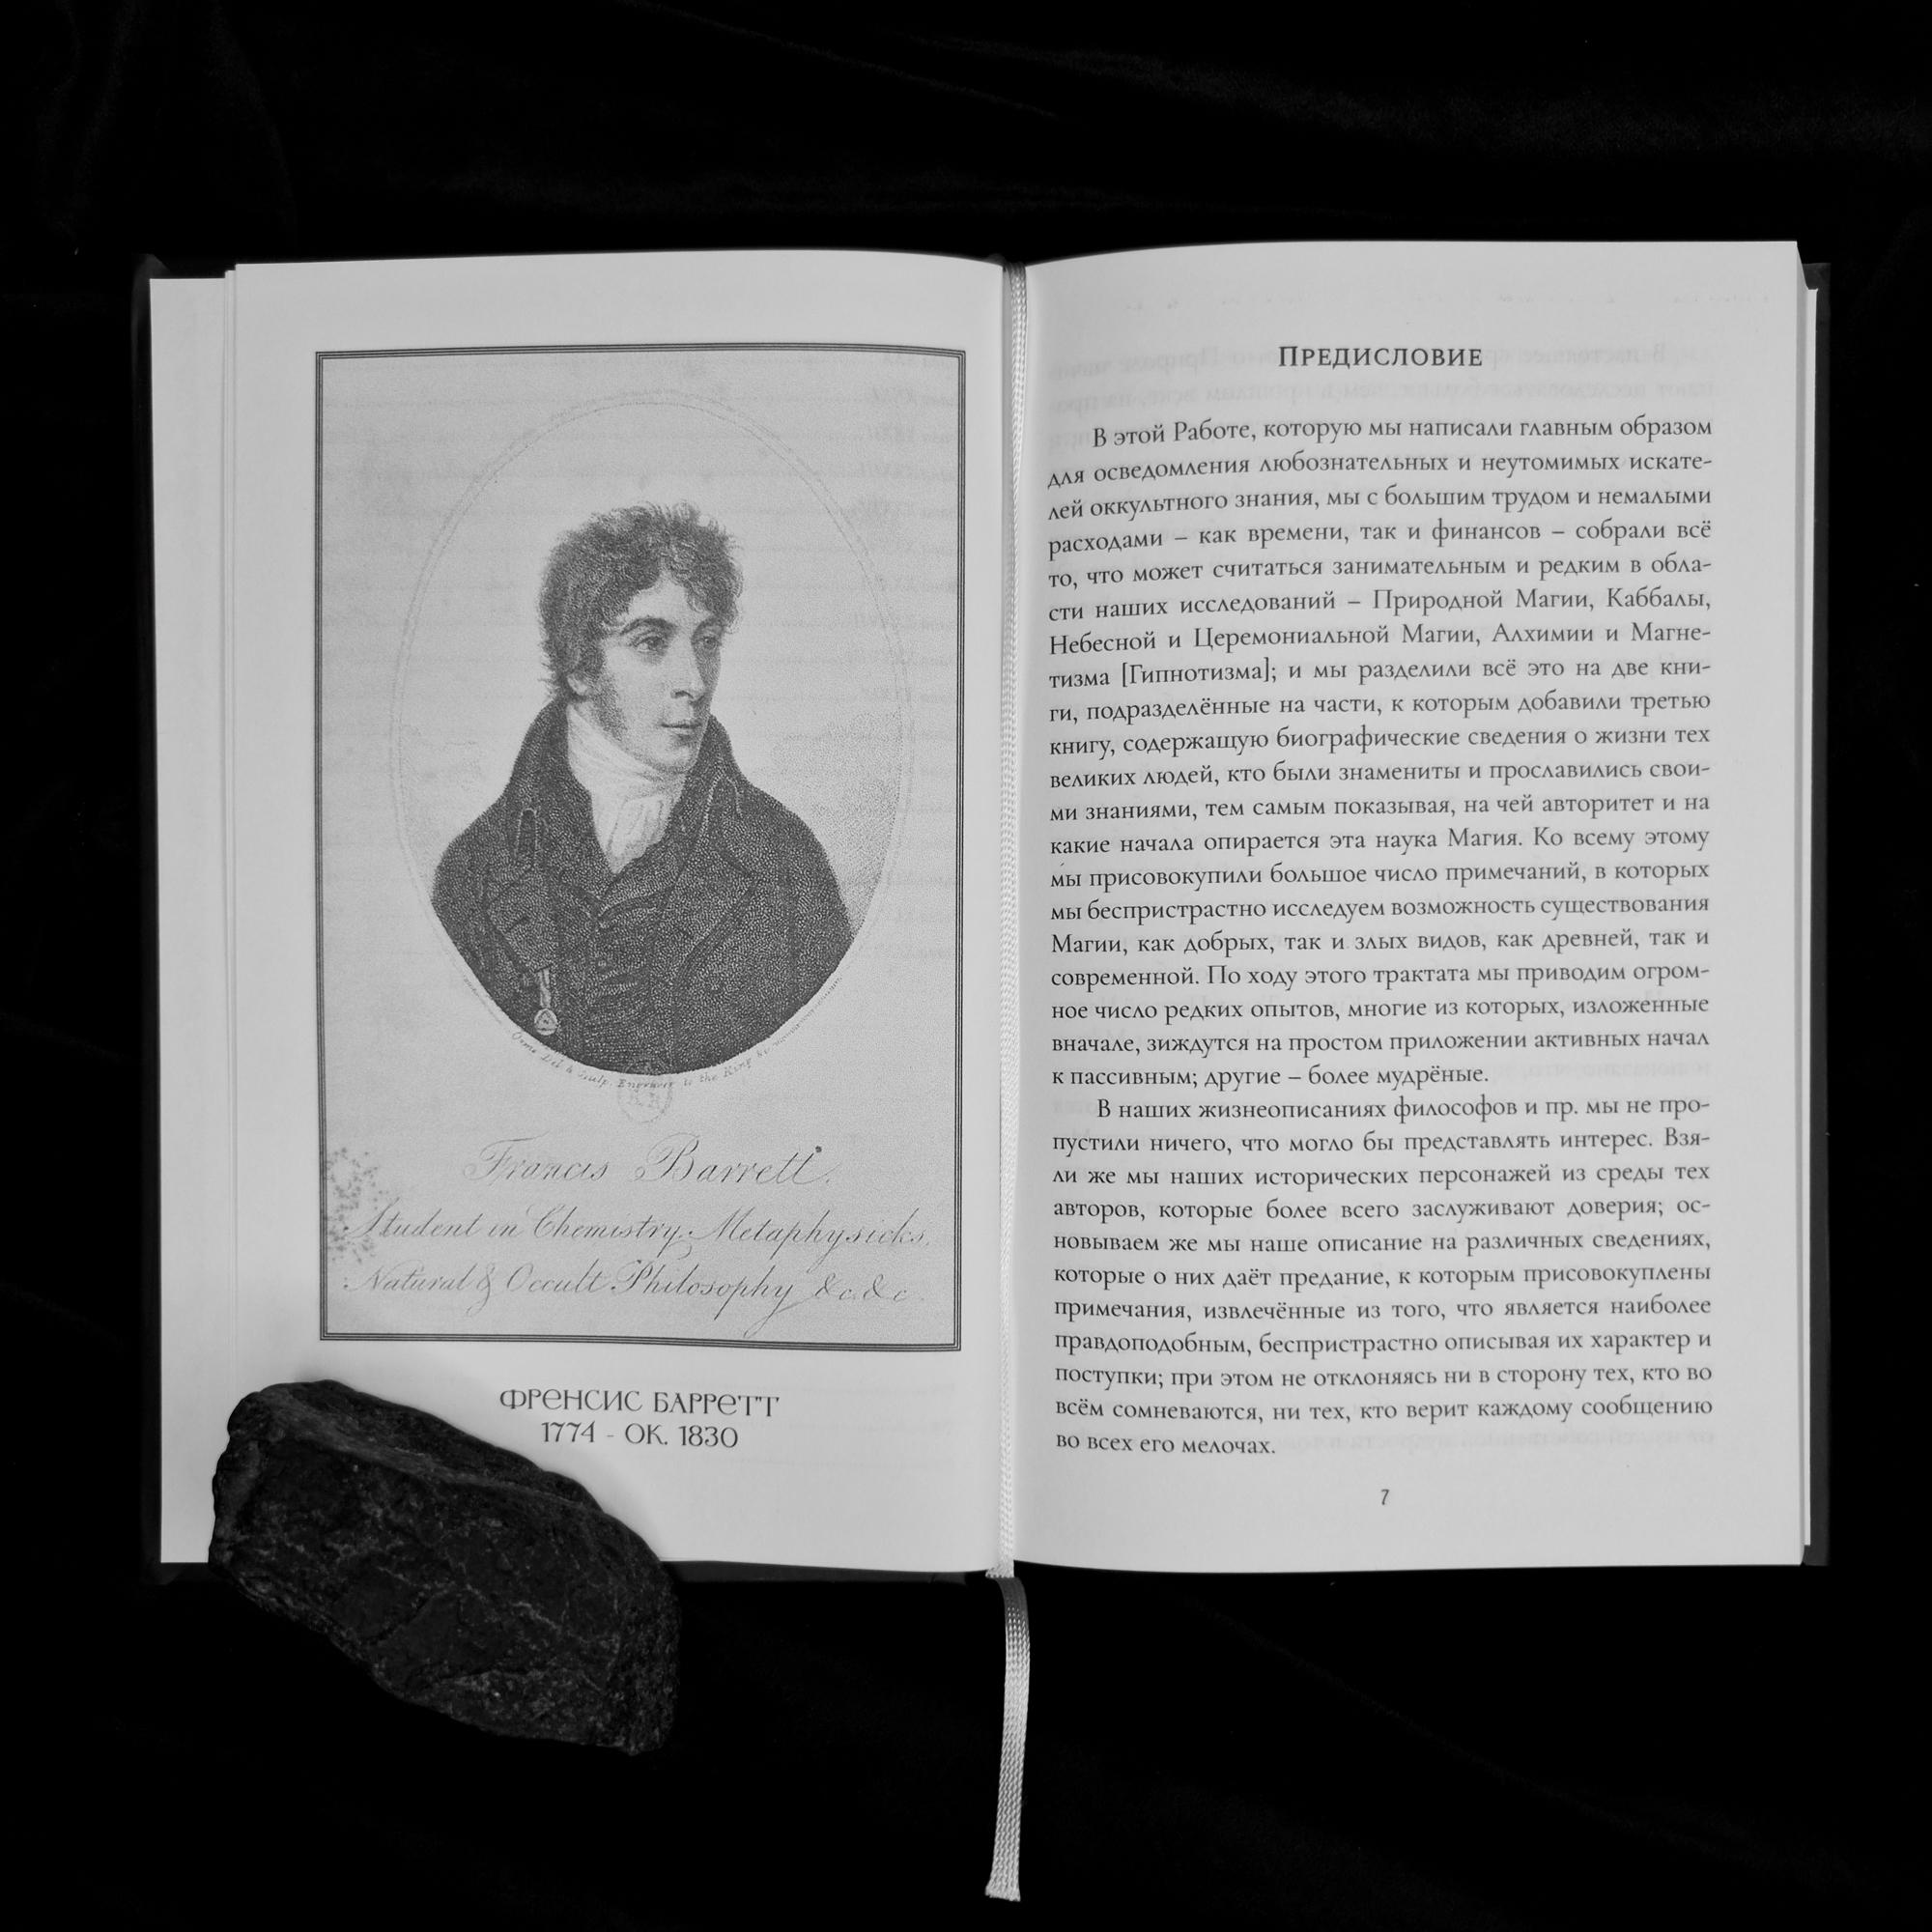 Engraver to the King
Francis Barrett.
Student in Chemistry, Metaphysicks,
Natural & Occult Philosophy &c.&c.
ФРЕНСИС БАРРЕТТ
1774 - ОК. 1830
ПРЕДИСЛОВИЕ
В этой Работе, которую мы написали главным образом
для осведомления любознательных и неутомимых искате-
лей оккультного знания, мы с большим трудом и немалыми
расходами – как времени, так и финансов – собрали всё
то, что может считаться занимательным и редким в обла-
сти наших исследований – Природной Магии, Каббалы,
Небесной и Церемониальной Магии, Алхимии и Магне-
тизма [Гипнотизма]; и мы разделили всё это на две кни-
ги, подразделённые на части, к которым добавили третью
книгу, содержащую биографические сведения о жизни тех
великих людей, кто были знамениты и прославились свои-
ми знаниями, тем самым показывая, на чей авторитет и на
какие начала опирается эта наука Магия. Ко всему этому
мы присовокупили большое число примечаний, в которых
мы беспристрастно исследуем возможность существования
Магии, как добрых, так и злых видов, как древней, так и
современной. По ходу этого трактата мы приводим огром-
ное число редких опытов, многие из которых, изложенные
вначале, зиждутся на простом приложении активных начал
к пассивным; другие – более мудрёные.
В наших жизнеописаниях философов и пр. мы не про-
пустили ничего, что могло бы представлять интерес. Взя-
ли же мы наших исторических персонажей из среды тех
авторов, которые более всего заслуживают доверия; ос-
новываем же мы наше описание на различных сведениях,
которые о них даёт предание, к которым присовокуплены
примечания, извлечённые из того, что является наиболее
правдоподобным, беспристрастно описывая их характер и
поступки; при этом не отклоняясь ни в сторону тех, кто во
всём сомневаются, ни тех, кто верит каждому сообщению
во всех его мелочах.
7